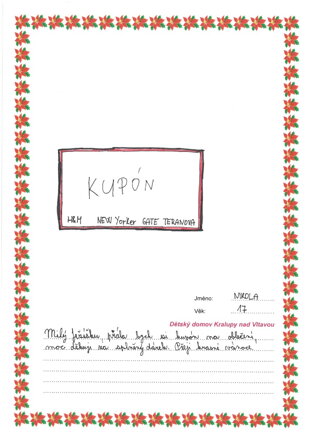 KUPÓN
H&M NEW Yorker GATE TERANOVA
Jméno: NIKOLA
Věk: 17
Dětský domov Kralupy nad Vltavou
Milý Ježíšku, přála bych si kupón na oblečení,
moc děkuji za splněný dárek. Přeji krásné vánoce.